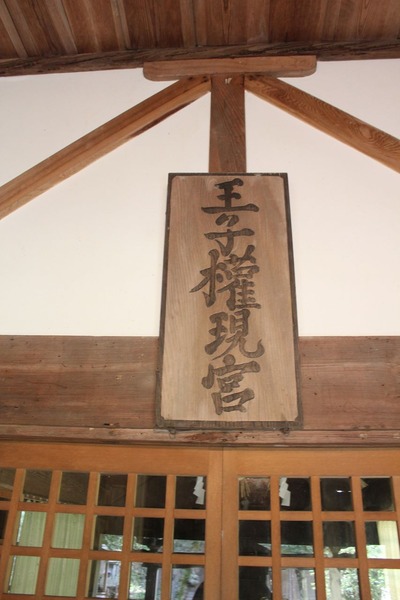 王子権現宮